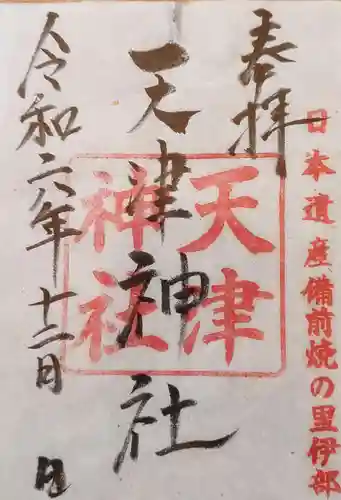 日本遺産備前焼の里伊部
奉拝
天津神社
天津
神社
令和六年十二月 日